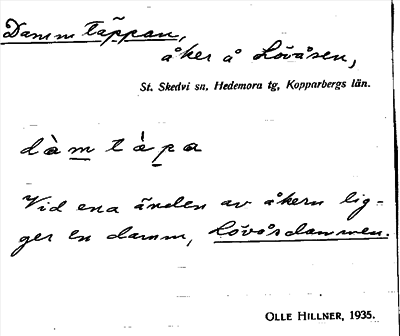 Dammtäppan,
åker å Lövåsen,
St. Skedvi sn, Hedemora tg, Kopparbergs län.
dàmtápa
Vid ena änden av åkern lig-
ger en damm, Lövåsdammen.
OLLE HILLNER, 1935.